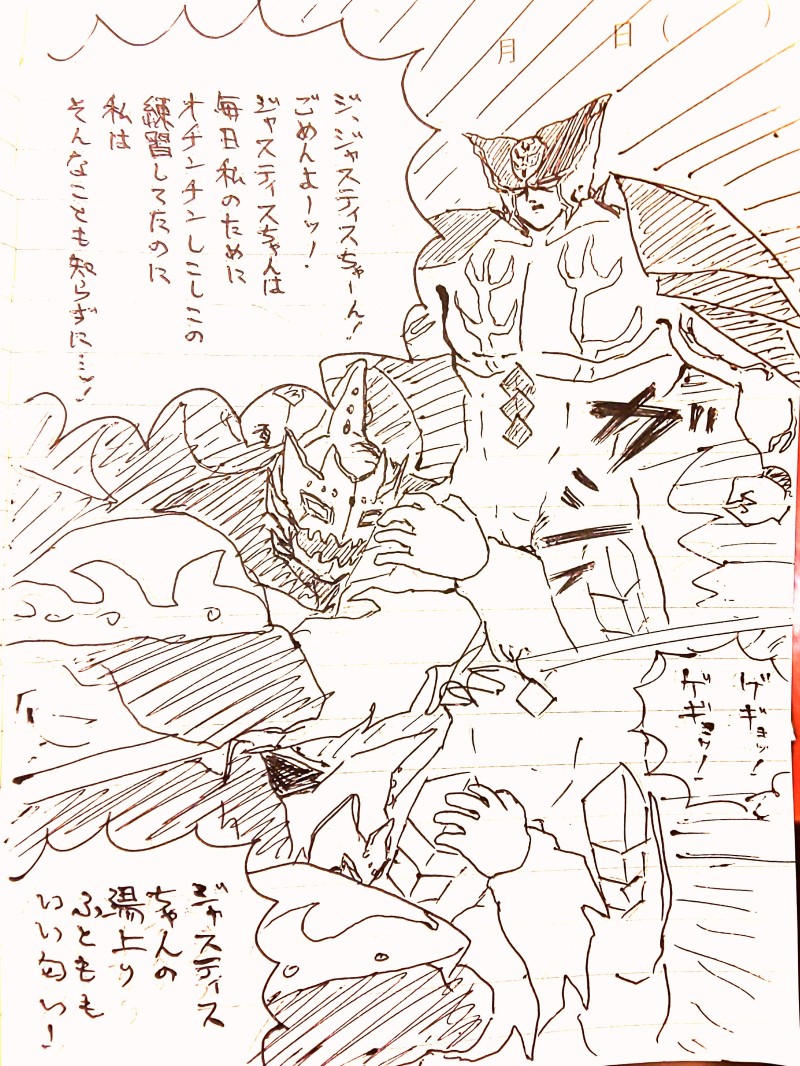 月　日（　）
ジ、ジャスティスちゃーん！
ごめんよーッ！
ジャスティスちゃんは
毎日私のために
オチンチンしこしこの
練習してたのに
私は
そんなことも知らずに…！
ガバ
ゲギョッ！
ゲギョッ！
ジャスティス
ちゃんの
湯上り
ふともも
いい匂い！